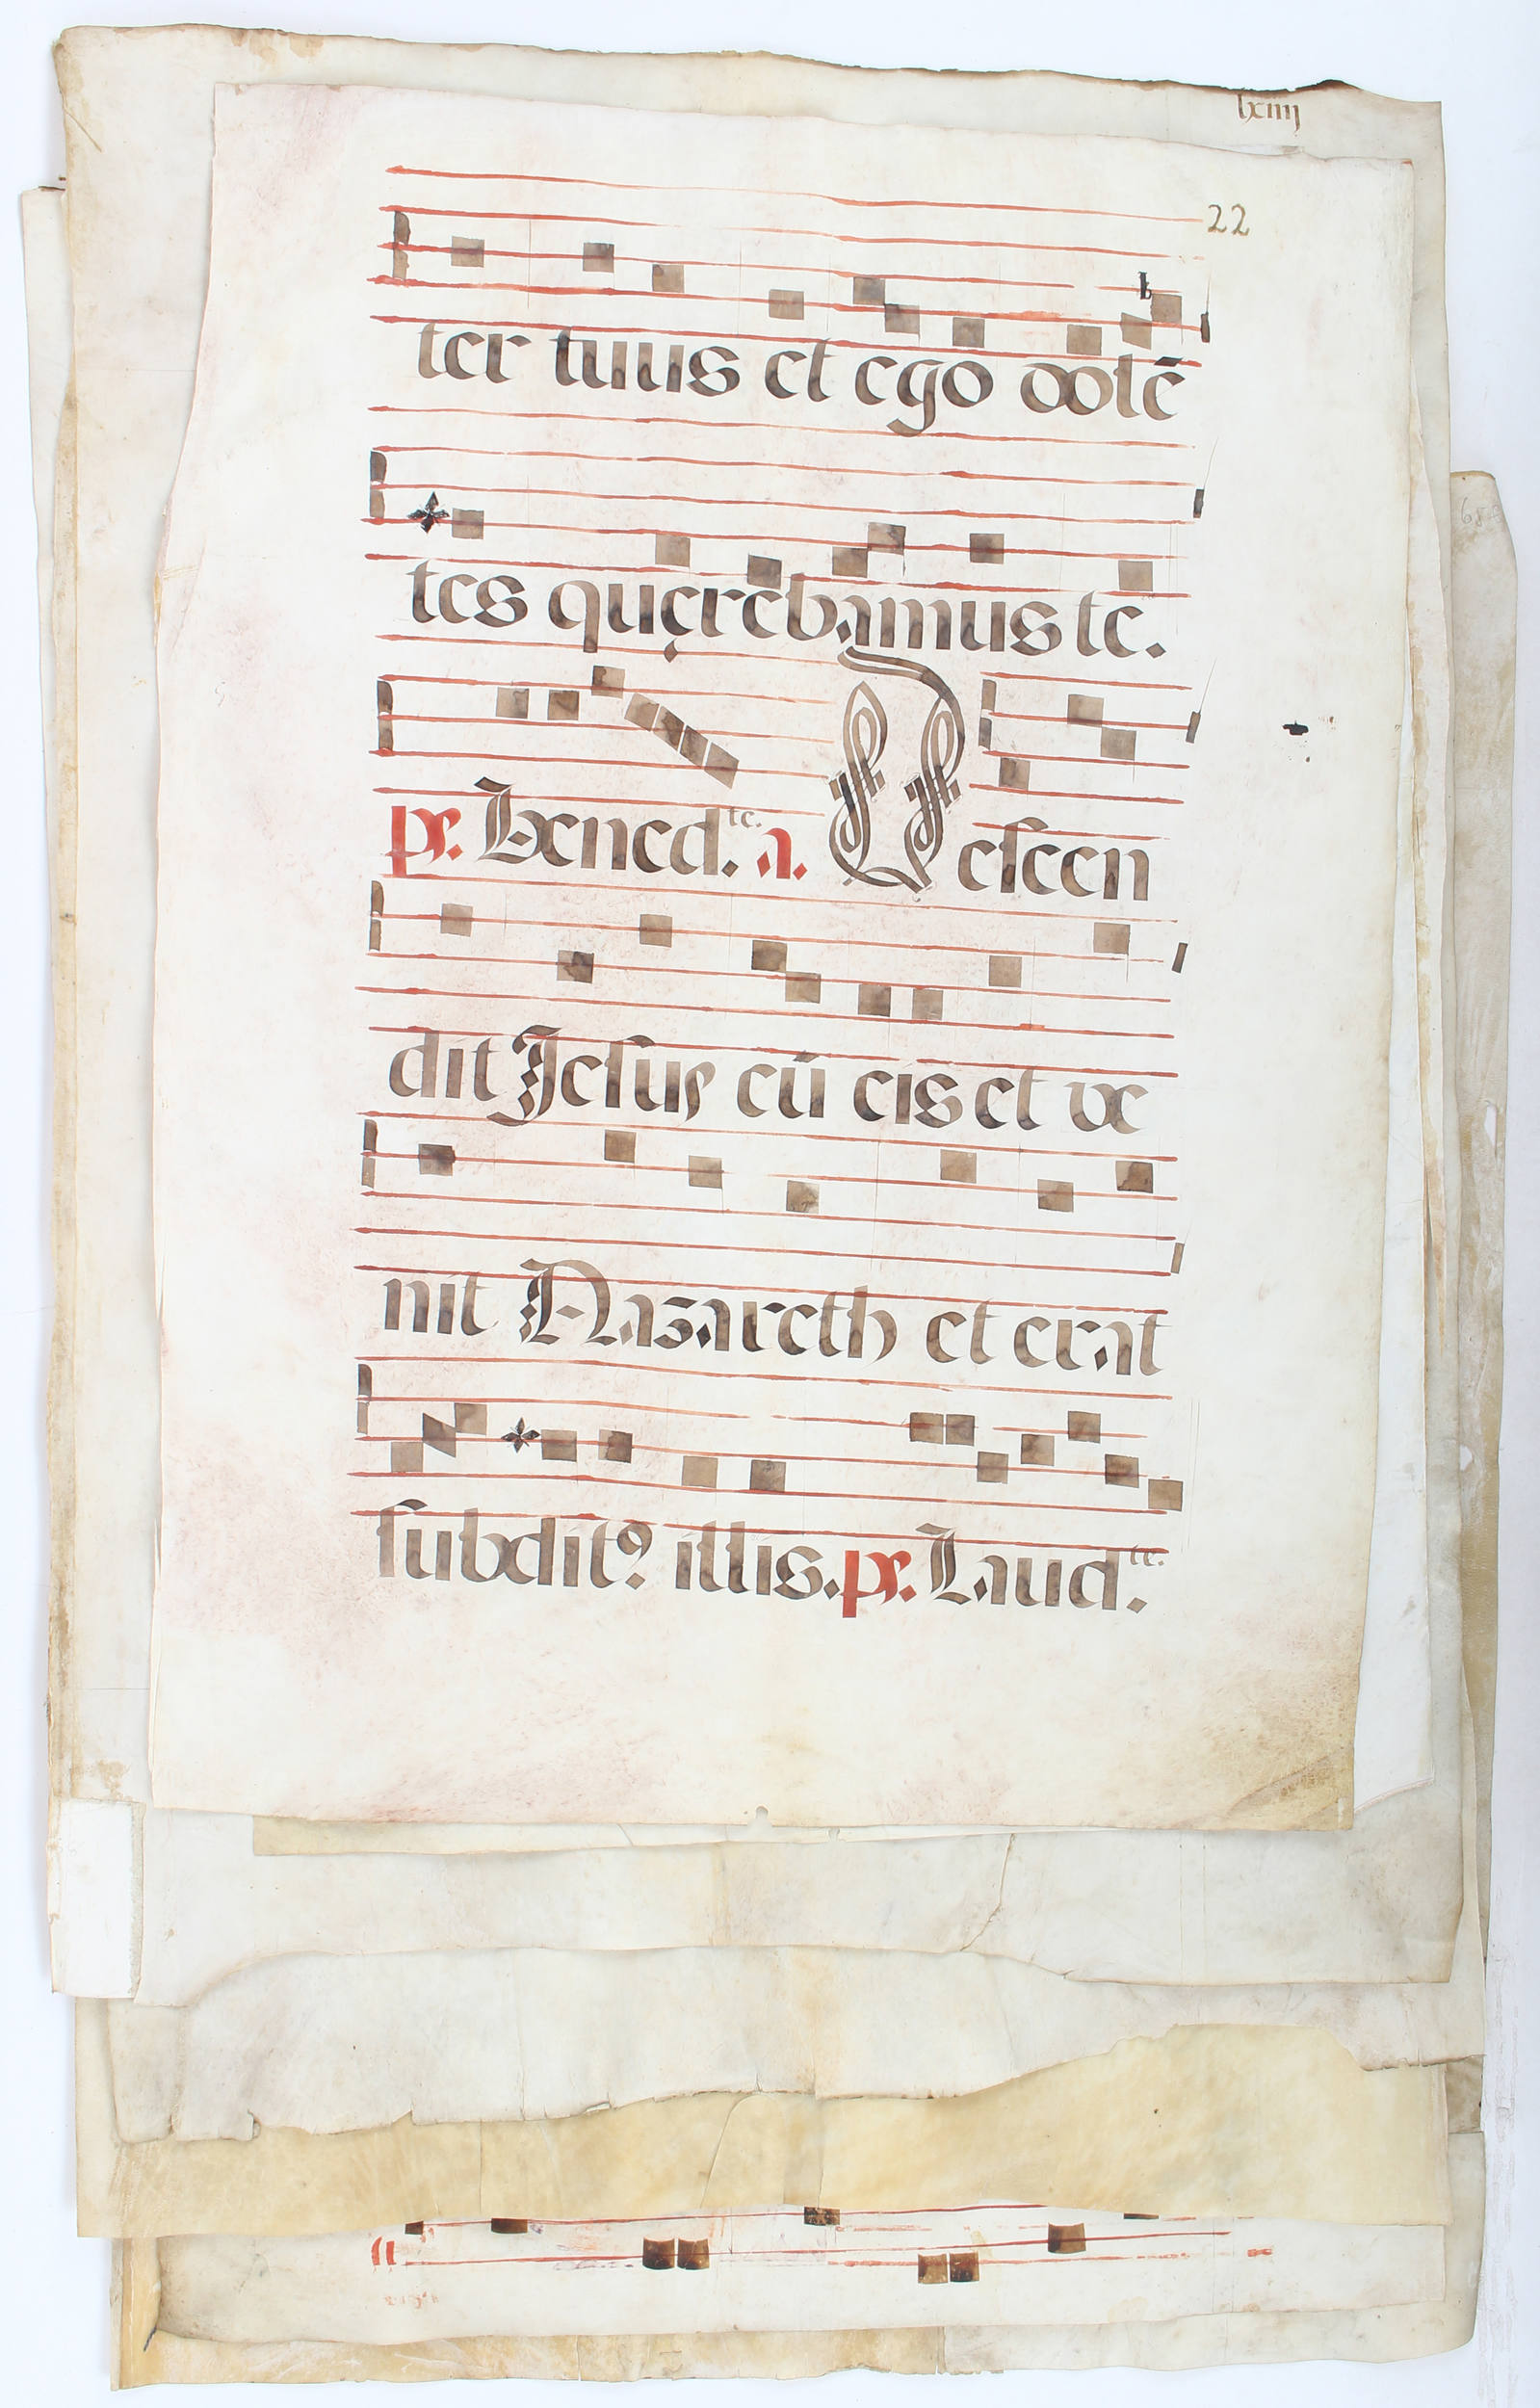 lxiiij
22
ter tuus et ego dolē
tes quęrebamus te.
ps. Bened.te. a. Descen
dit Jesus cū eis et ve
nit Nazareth et erat
subdit9 illis. ps. Laud.te.